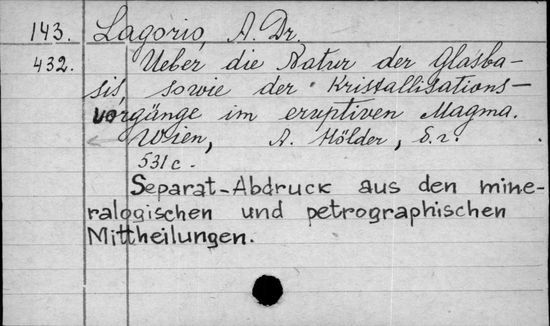 143. Lagorio, A. Dr.
432. Ueber die Natur der Glasba-
sis, sowie der Kristallisations-
vorgänge im eruptiven Magma.
Wien, A. Hölder, s.a.
531c.
Separat-Abdruck aus den mine-
ralogischen und petrographischen
Mittheilungen.